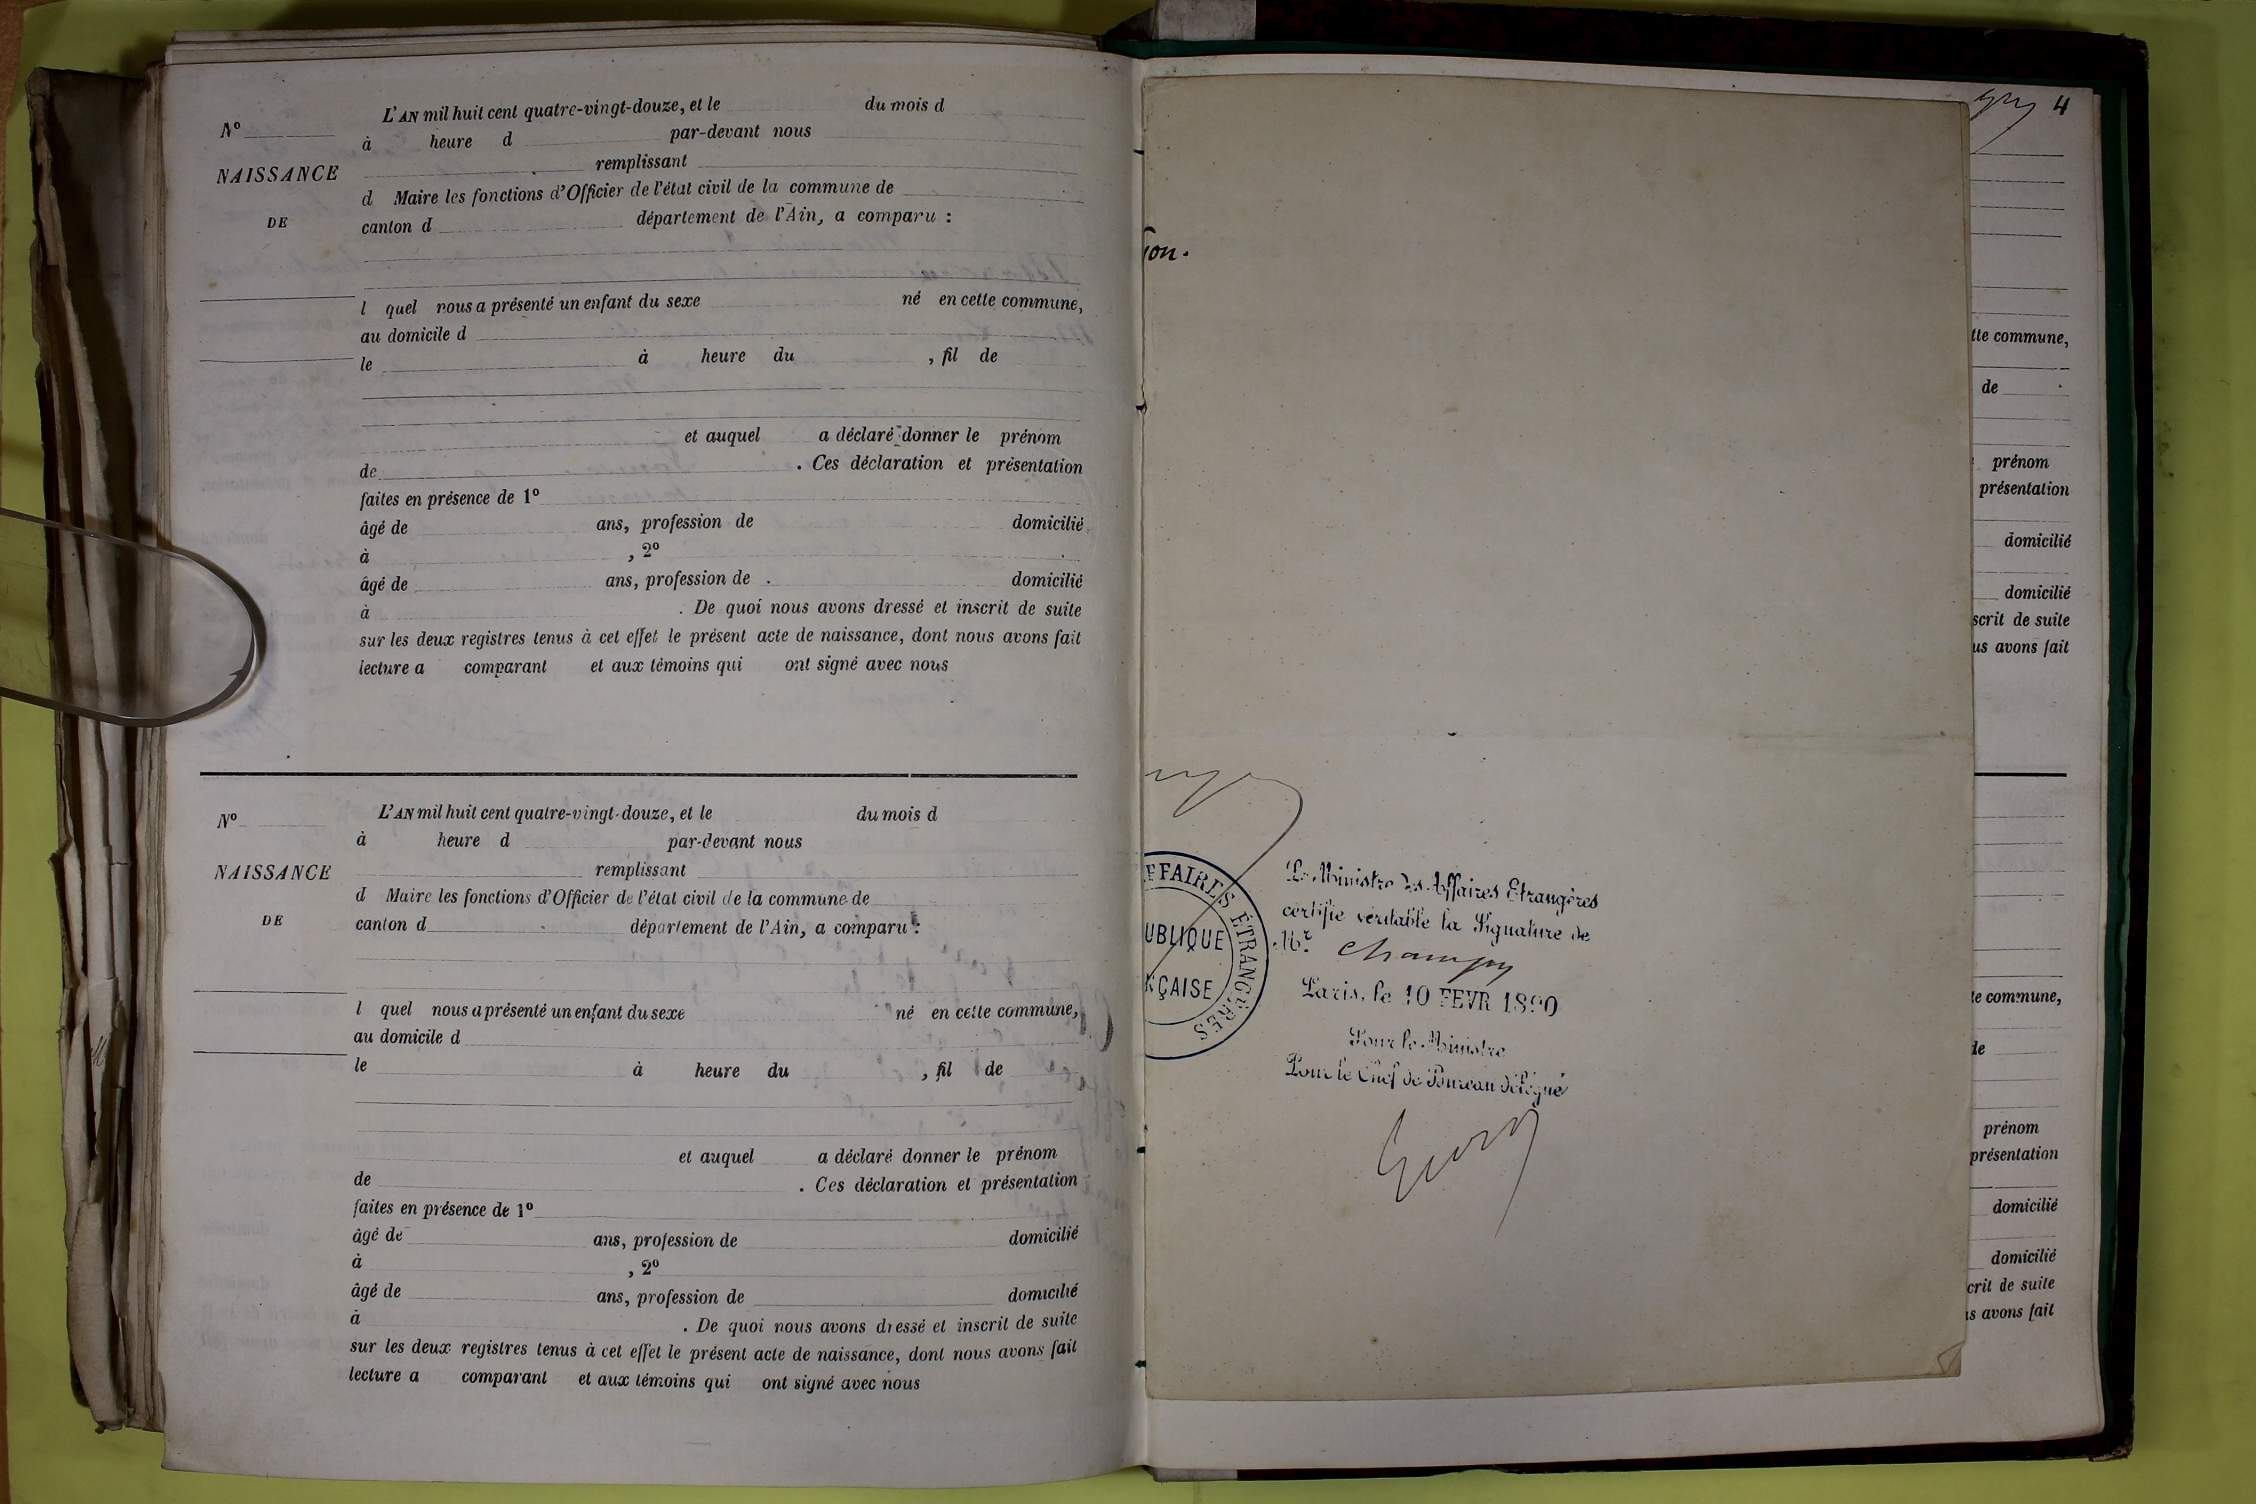 L'AN mil huit cent quatre-vingt-douze, et le du mois d
Nº à heure d par-devant nous
remplissant
NAISSANCE
d Maire les fonctions d'Officier de l'état civil de la commune de
DE canton d département de l'Ain, a comparu :
l quel nous a présenté un enfant du sexe né en cette commune,
au domicile d
le à heure du , fil de
et auquel a déclaré donner le prénom
de . Ces déclaration et présentation
faites en présence de 1º
âgé de ans, profession de domicilié
à , 2º
âgé de ans, profession de . domicilié
à . De quoi nous avons dressé et inscrit de suite
sur les deux registres tenus à cet effet le présent acte de naissance, dont nous avons fait
lecture a comparant et aux témoins qui ont signé avec nous
L'AN mil huit cent quatre-vingt-douze, et le du mois d
Nº
à heure d par-devant nous
NAISSANCE remplissant
d Maire les fonctions d'Officier de l'état civil de la commune de
DE canton d département de l'Ain, a comparu :
l quel nous a présenté un enfant du sexe né en cette commune,
au domicile d
le à heure du , fil de
et auquel a déclaré donner le prénom
de . Ces déclaration et présentation
faites en présence de 1º
âgé de ans, profession de domicilié
à , 2º
âgé de ans, profession de domicilié
à . De quoi nous avons dressé et inscrit de suite
sur les deux registres tenus à cet effet le présent acte de naissance, dont nous avons fait
lecture a comparant et aux témoins qui ont signé avec nous
on.
FFAIRES ÉTRANGÈRES
UBLIQUE
ÇAISE
Le Ministre des Affaires Etrangères
certifie véritable la Signature de
Mr. Champy
Paris, le 10 FEVR 1890
Pour le Ministre
Pour le Chef de Bureau délégué
4
tte commune,
de
prénom
présentation
domicilié
domicilié
scrit de suite
us avons fait
te commune,
de
prénom
présentation
domicilié
domicilié
crit de suite
s avons fait